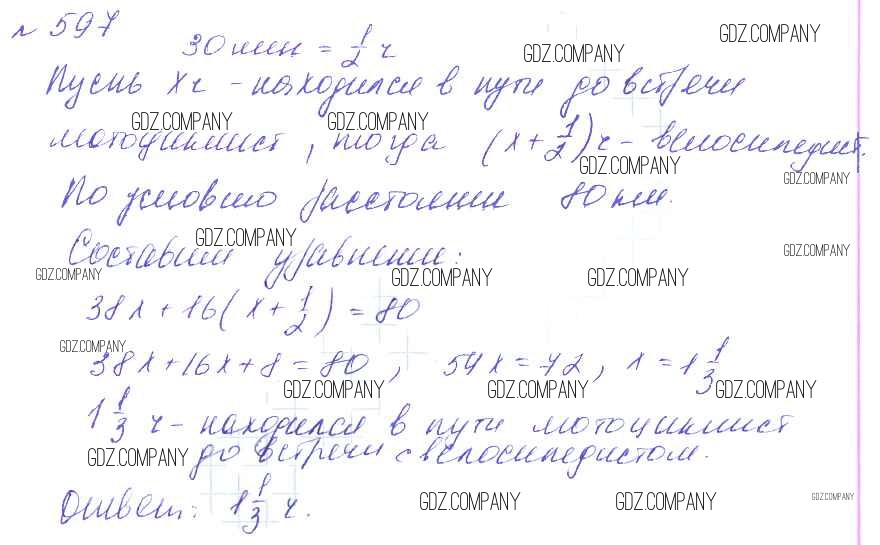 № 597
30 мин = 1/2 ч
GDZ.COMPANY GDZ.COMPANY
Пусть x ч - находился в пути до встречи
GDZ.COMPANY GDZ.COMPANY
мотоциклист, тогда (x + 1/2) ч - велосипедист.
GDZ.COMPANY GDZ.COMPANY
По условию расстояние 80 км.
GDZ.COMPANY GDZ.COMPANY
Составим уравнение:
GDZ.COMPANY GDZ.COMPANY GDZ.COMPANY
38x + 16(x + 1/2) = 80
GDZ.COMPANY
38x + 16x + 8 = 80, 54x = 72, x = 1 1/3
GDZ.COMPANY GDZ.COMPANY GDZ.COMPANY
1 1/3 ч - находился в пути мотоциклист
GDZ.COMPANY
до встречи с велосипедистом.
Ответ: 1 1/3 ч.
GDZ.COMPANY GDZ.COMPANY GDZ.COMPANY